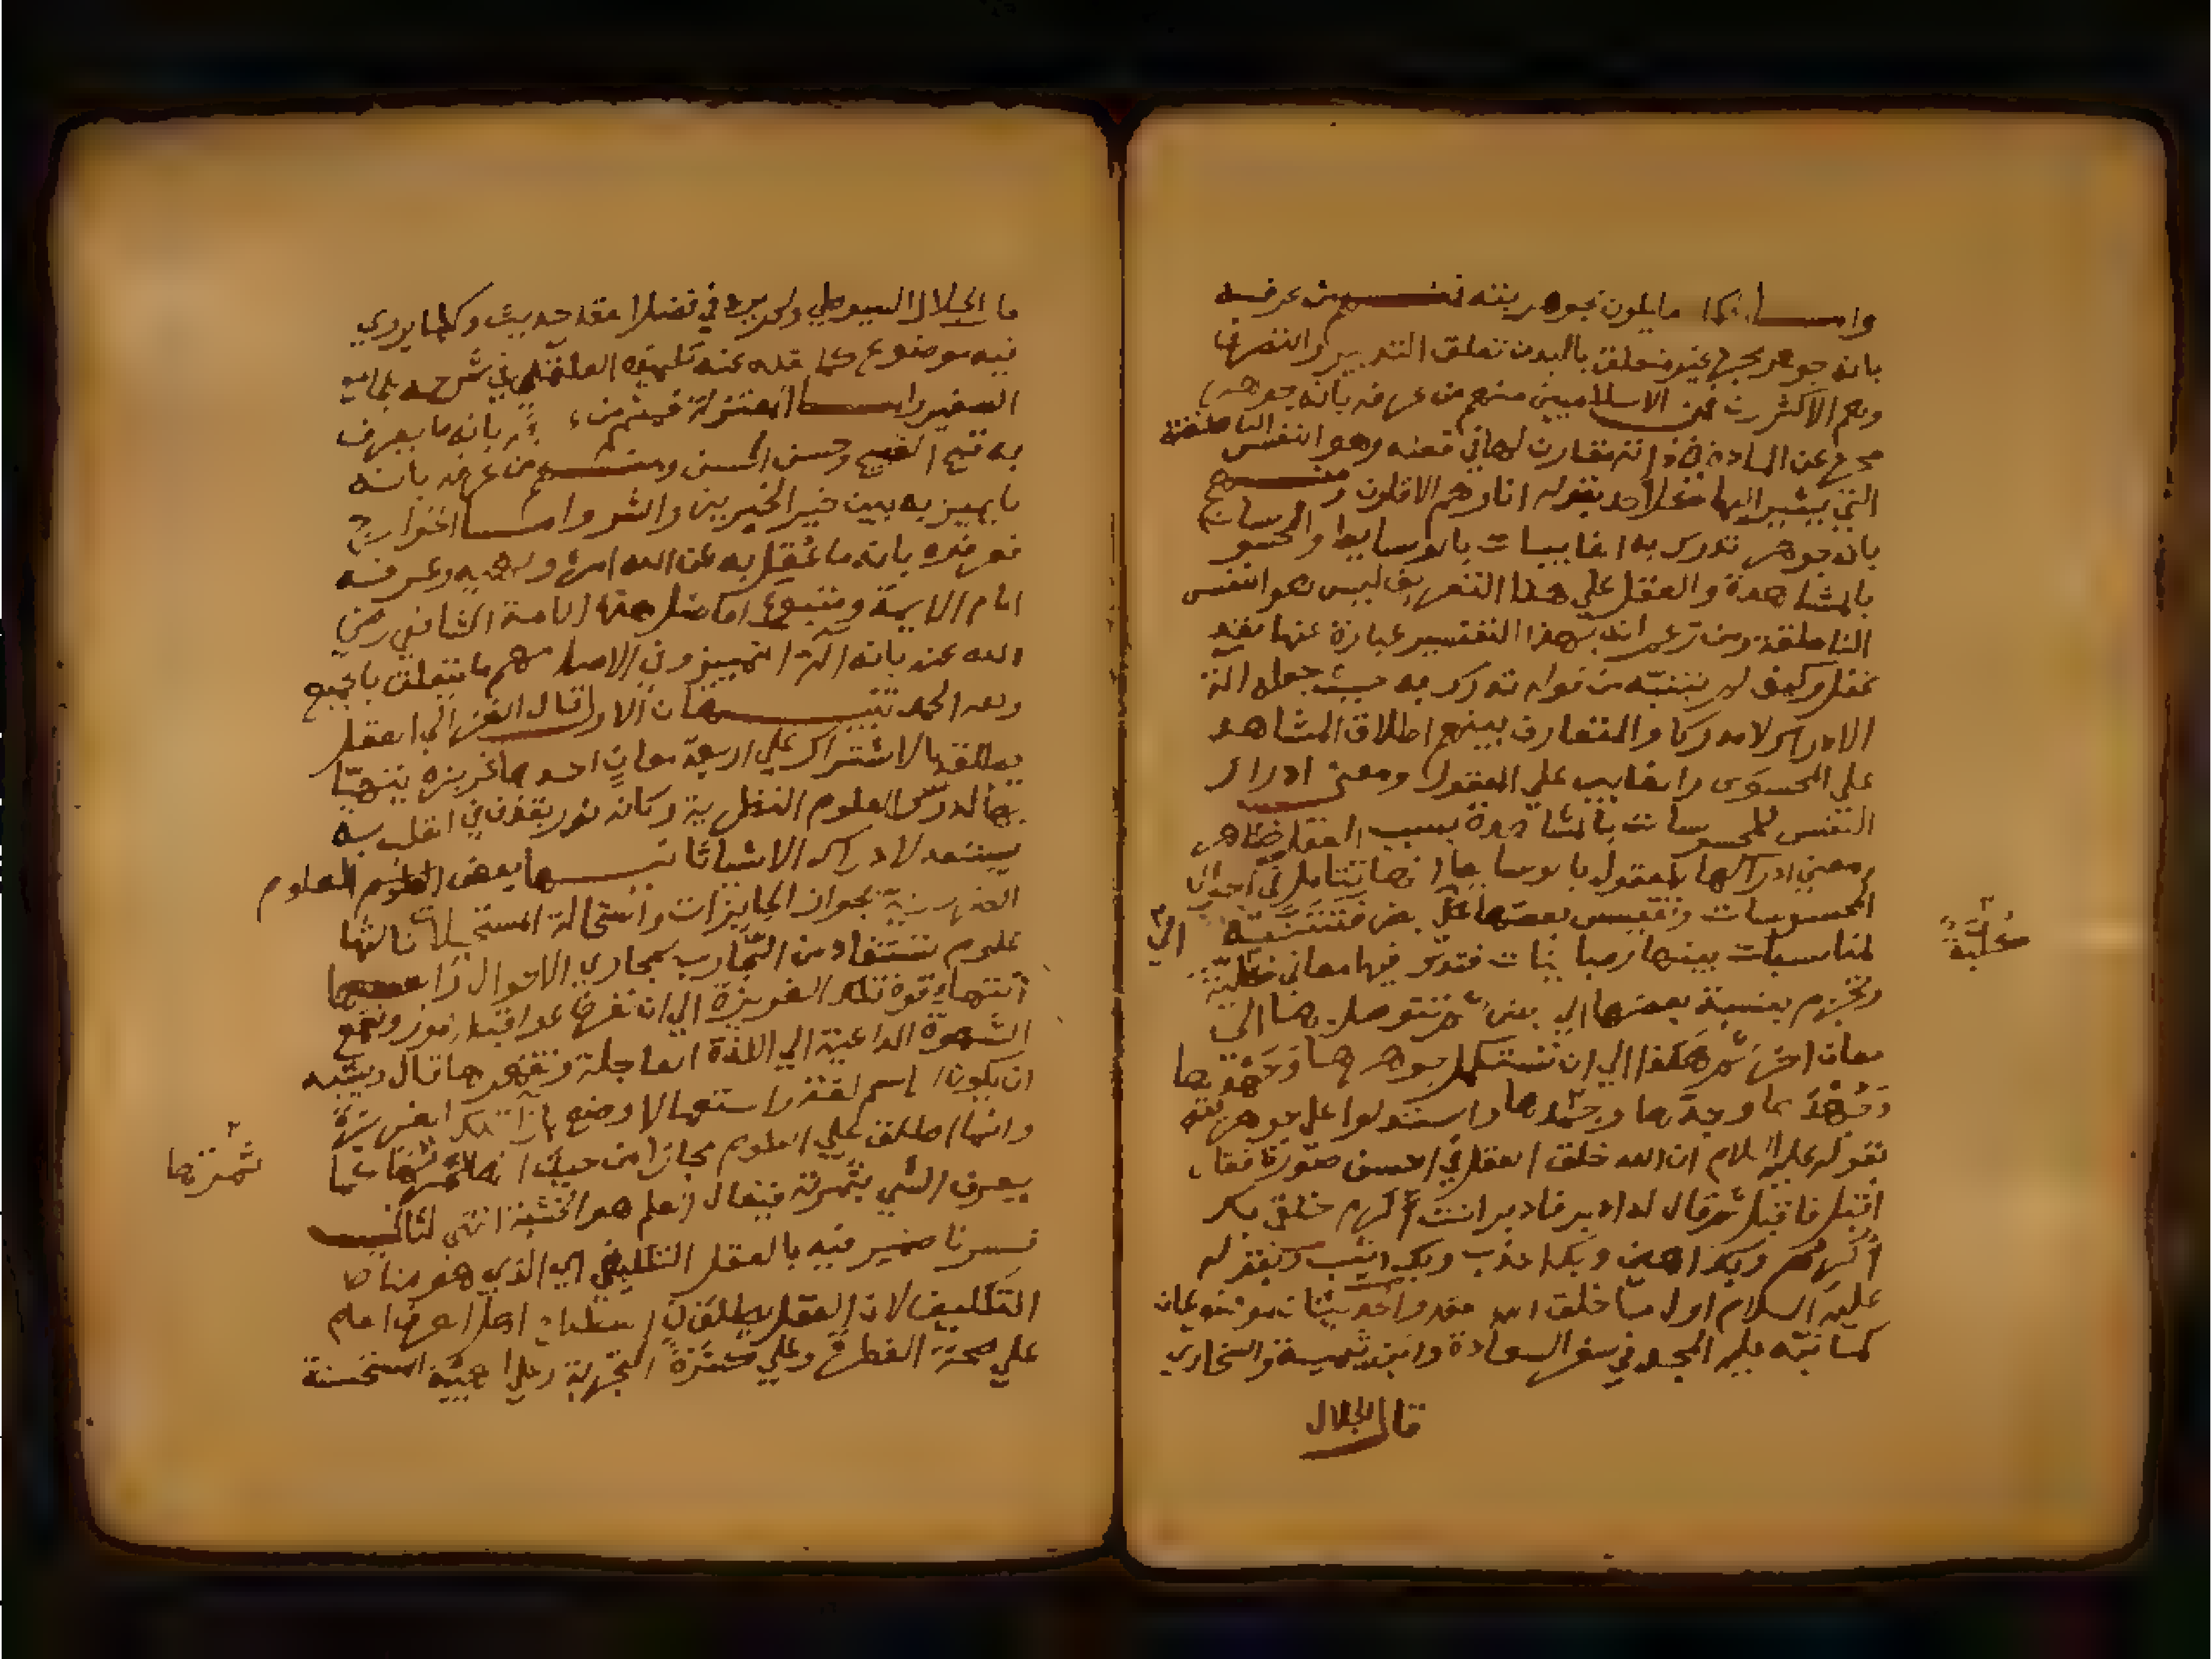 واما القائلون بجوهريته فمنهم من عرفه
بانه جوهر مجرد غير متعلق بالبدن تعلق التدبير والتصرف
وهم الاكثرون من الاسلاميين منهم من عرفه بانه جوهر
مجرد عن المادة في ذاته مقارن لها في فعله وهو النفس الناطقة
التي يشير اليها كل احد بقوله انا وهم الاقلون ومنهم
بانه جوهر تدرك به الغايبات بالوسايط والمحسوسات
بالمشاهدة والعقل علي هذا التعريف ليس هو النفس
الناطقة ومن زعم انه بهذا التفسير عبارة عنها فقد
غفل وكيف لم يتنبه من قوله تدرك به حيث جعله الة
الادراك لا مدركا والتعارف بينهم اطلاق المشاهد
علي المحسوس والغايب علي المعقول ومعني ادراك
النفس للمحسوسات بالمشاهدة بسبب العقل ظاهر
ومعني ادراكها للمعقول بالوسايط انها تتامل في احوال
المحسوسات وتقيس بعضها علي بعض فتتنبه الي
لمناسبات بينها ومباينات فتدرك فيها معاني كلية
كلية
وتجزم بنسبة بعضها الي بعض ثم تتوصل بها الي
معان اخر ثم هكذا الي ان تستكمل جوهرها
واستدلوا علي جوهريته
بقوله عليه السلام ان الله خلق العقل في احسن صورة فقال
اقبل فاقبل ثم قال له ادبر فادبر انت اكرم خلقي بك
اكرم وبك اهين وبك اعذب وبك اثيب وبقوله
عليه السلام اول ما خلق الله العقل والحديثان موضوعان
كما نبه عليه المجد في سفر السعادة وابن تيمية والسخاوي
قال الجلال
ما الجلال السيوطي ولم يرد في فضل العقل حديث وكلما يروي
فيه موضوع كما نقله عنه تلميذه العلقمي في شرحه لجامع
الصغير واما المعتزلة فمنهم من عرفه بانه ما يعرف
به قبح القبيح وحسن الحسن ومنهم من عرفه بانه
ما يميز به بين خير الخيرين والشر واما الخوارج
فعرفوه بانه ما عقل به عن الله امره ونهيه وعرفه
امام الايمة ومتبوع افاضل هذه الامة الشافعي رضي
الله عنه بانه الة التمييز وفي الاصل مهم ما يتعلق بالجميع
ولله الحمد تنبيهان الاول قال الغزالي العقل
يطلق بالاشتراك علي اربعة معان احدها غريزة يتهيا
بها لدرك العلوم النظرية وكانه نور يقذف في القلب به
يستعد لادراك الاشيا ثانيها بعض العلوم
الضرورية بجواز الجايزات واستحالة المستحيلات ثالثها
علوم تستفاد من التجارب بمجاري الاحوال رابعها
انتهاء قوة تلك الغريزة الي ان تعرف عواقب الامور وتقمع
الشهوة الداعية الي اللذة العاجلة وتقهرها قال ويشبه
ان يكون الاسم لغة واستعمالا وضع بازاء تلك الغريزة
وانما اطلق علي العلوم مجازا من حيث انها ثمرتها كما
ثمرتها
يعرف الشي بثمرته فيقال العلم هو الخشية انتهي الثاني
فسرنا ضمير فيه بالعقل التكليفي اي الذي هو مناط
التكليف لان العقل يطلق في اصطلاح اهل العرف العام
علي صحة الفطرة وعلي كثرة التجربة وعلي الهيئة المستحسنة